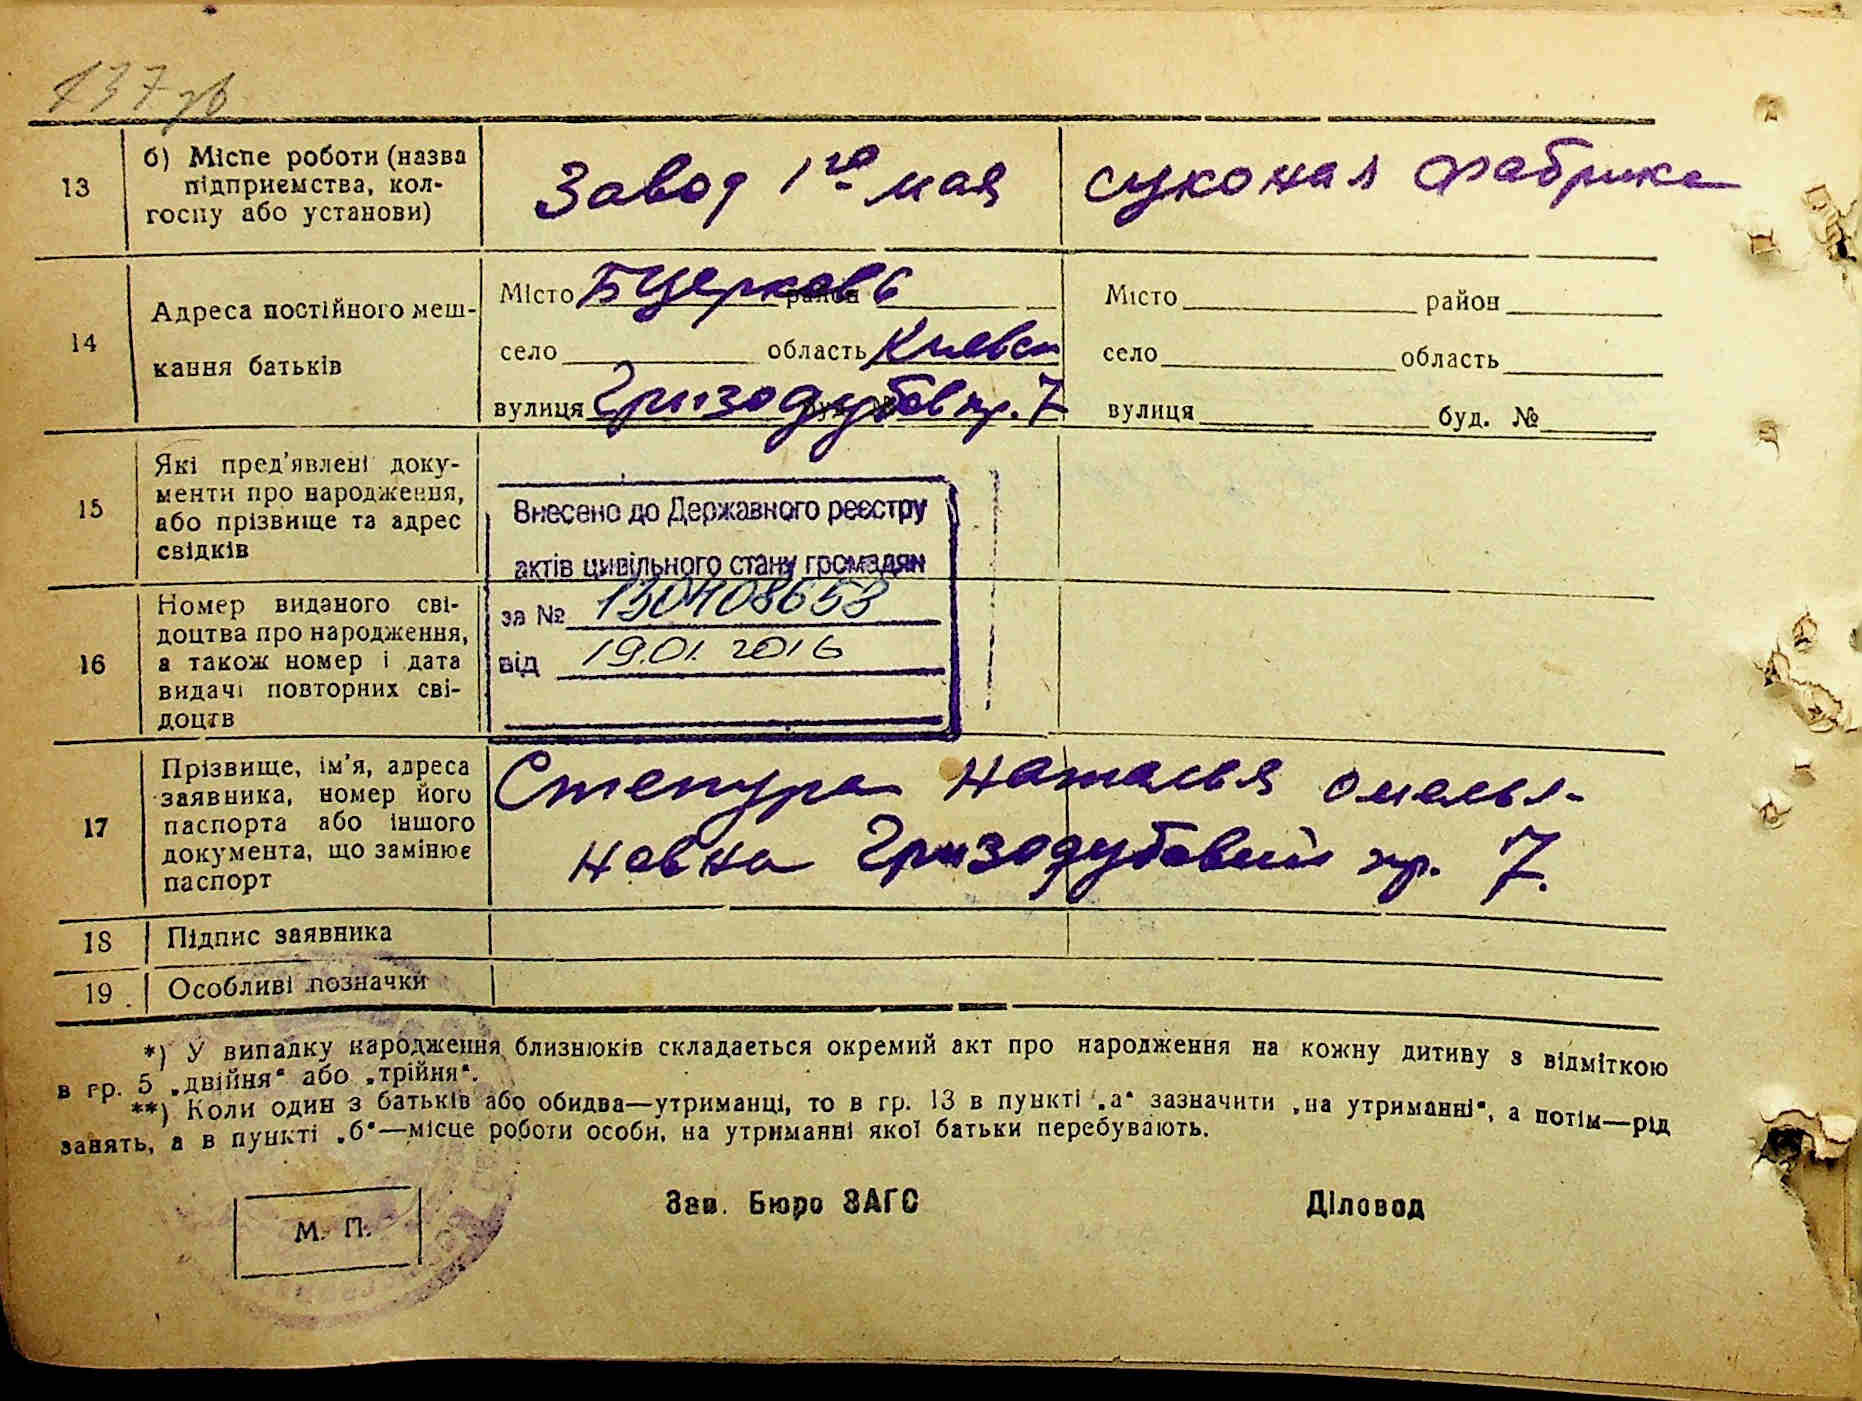 137 зв
13
б) Місце роботи (назва
підприємства, кол-
госпу або установи)
Завод 1го мая
суконая фабрика
14
Адреса постійного меш-
кання батьків
Місто БЦерковь район
село область Киевск
вулиця Гризодубов пр. 7
Місто район
село область
вулиця буд. №
15
Які пред'явлені доку-
менти про народження,
або прізвище та адрес
свідків
Внесено до Державного реєстру
актів цивільного стану громадян
за № 130408658
від 19.01.2016
16
Номер виданого сві-
доцтва про народження,
а також номер і дата
видачі повторних сві-
доцтв
17
Прізвище, ім'я, адреса
заявника, номер його
паспорта або іншого
документа, що замінює
паспорт
Степура Наталья Омелья-
новна Гризодубовий пр. 7.
18
Підпис заявника
19
Особливі позначки
*) У випадку народження близнюків складається окремий акт про народження на кожну дитину з відміткою
в гр. 5 „двійня“ або „трійня“.
**) Коли один з батьків або обидва—утриманці, то в гр. 13 в пункті „а“ зазначити „на утриманні“, а потім—рід
занять, а в пункті „б“—місце роботи особи, на утриманні якої батьки перебувають.
М. П.
Зав. Бюро ЗАГС
Діловод